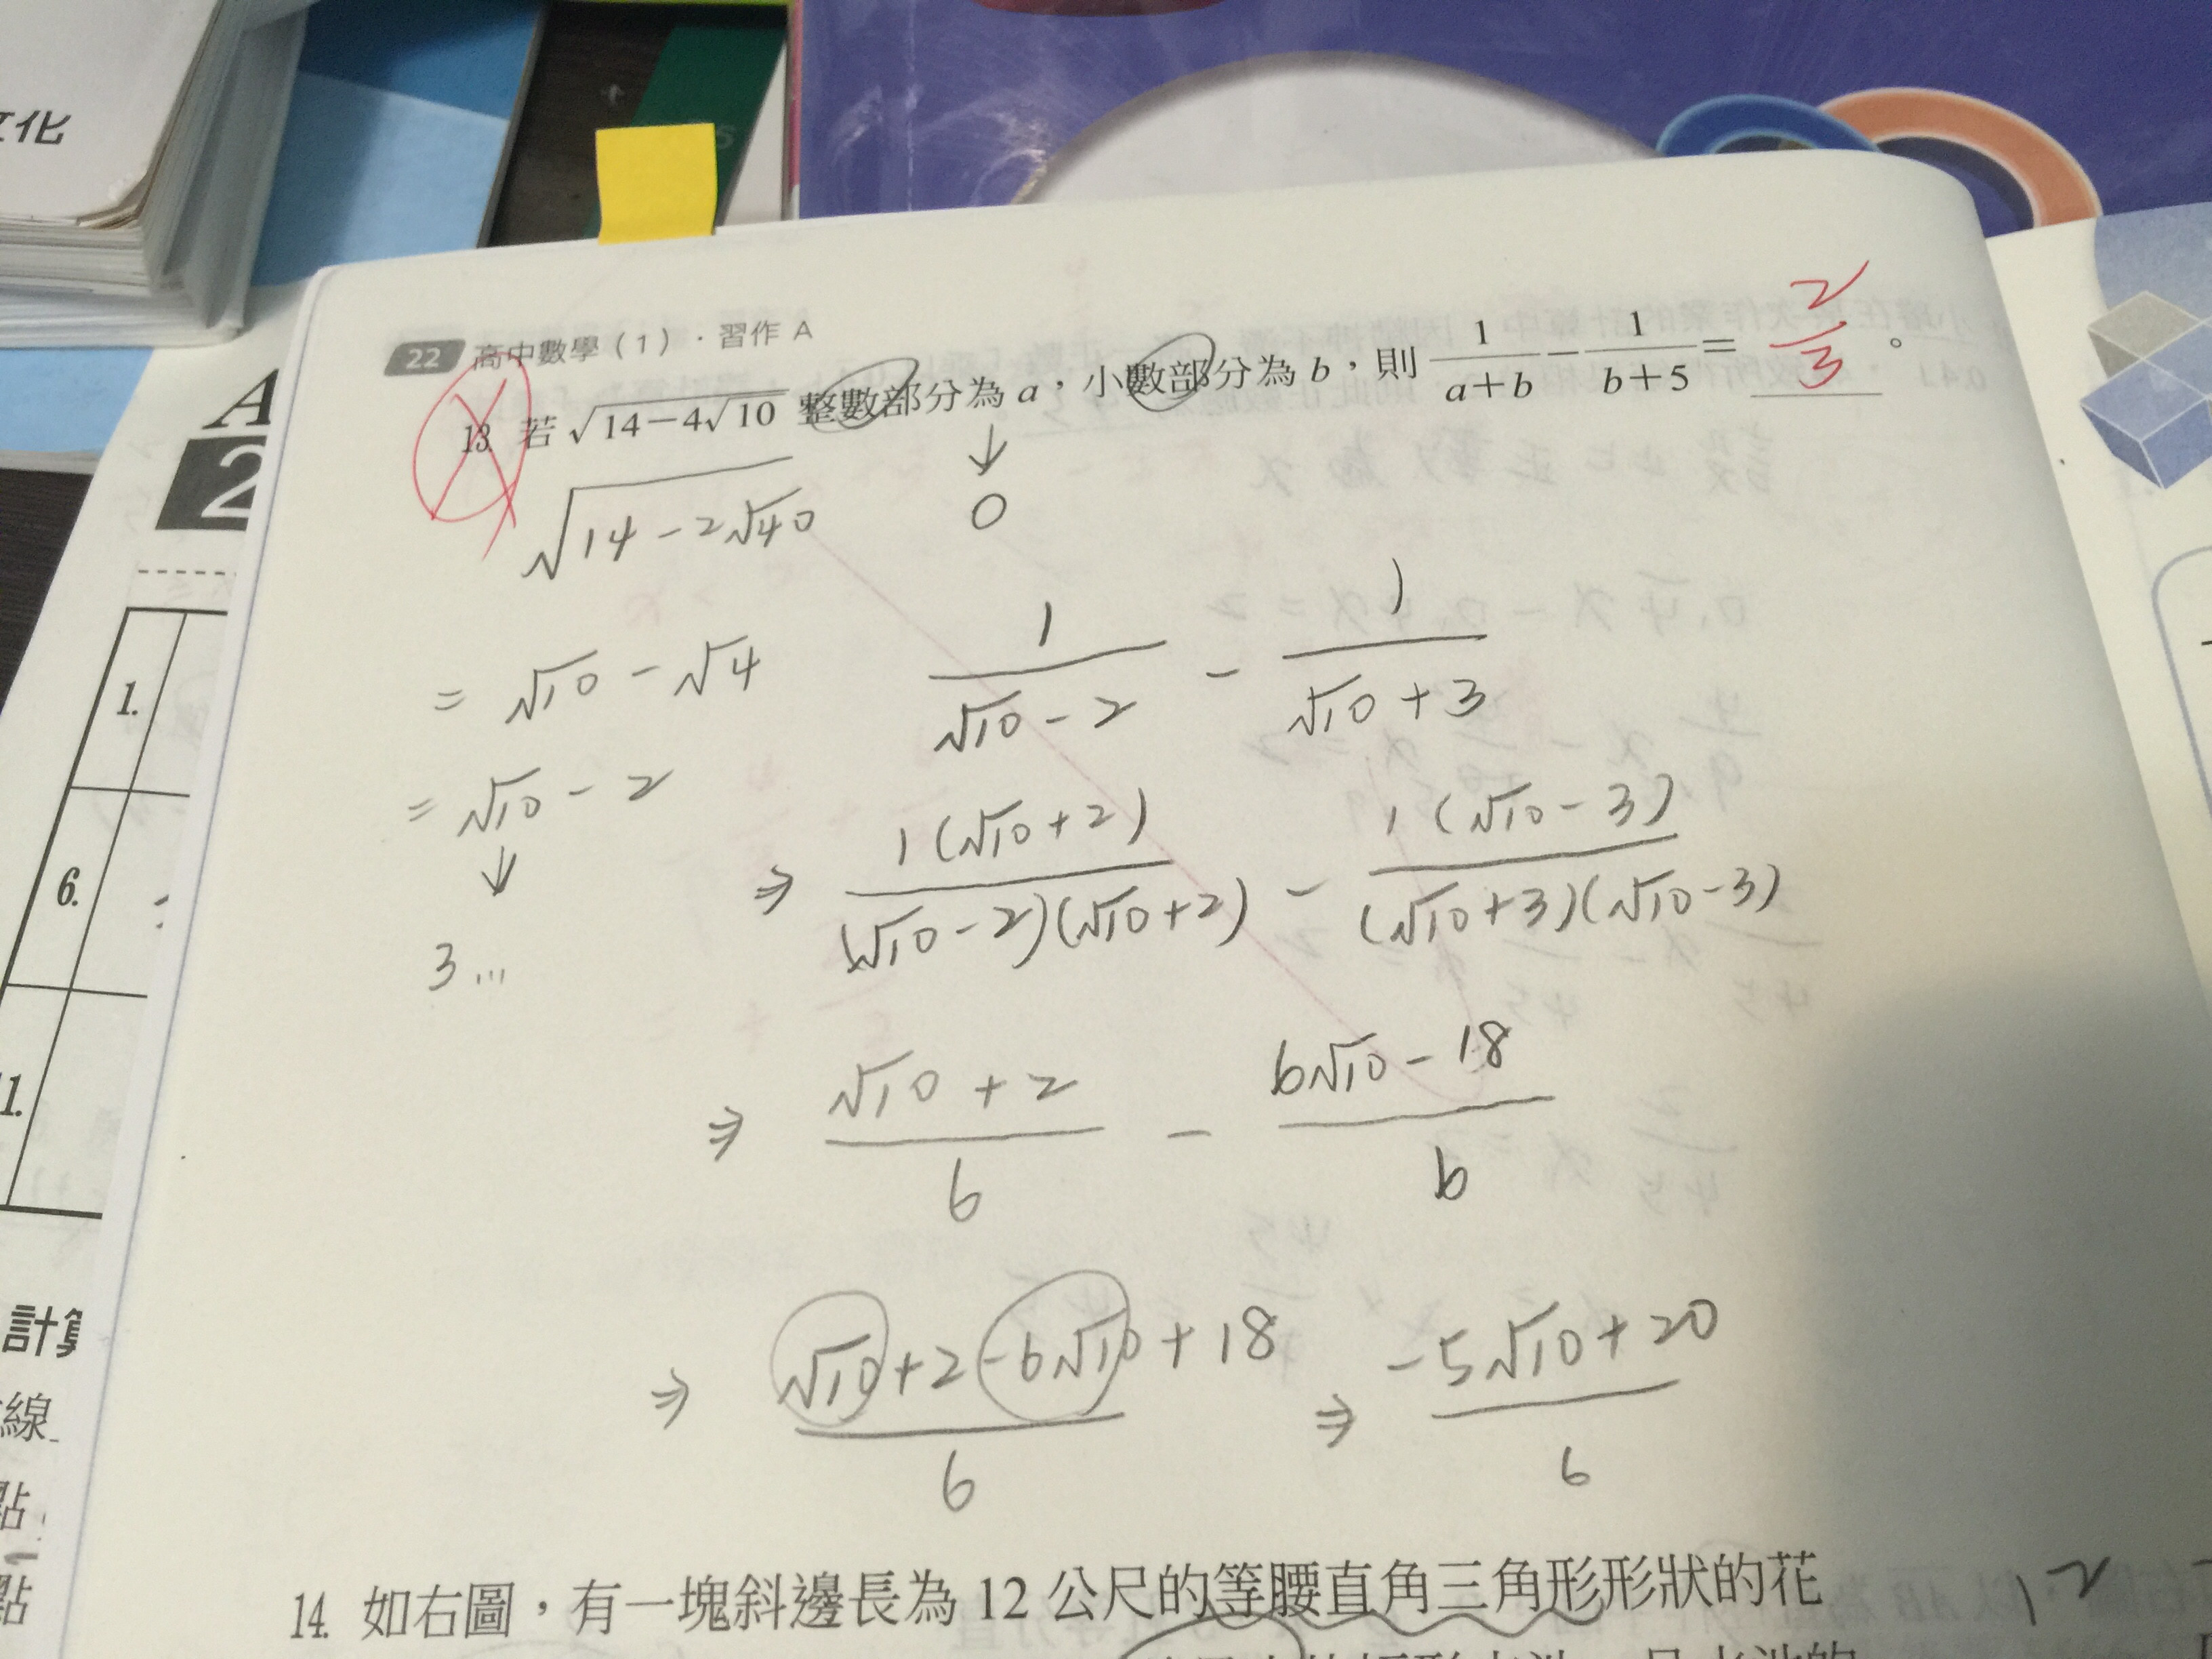 文化
22 高中數學(1)‧習作 A
13. 若 √(14－4√10) 整數部分為 a，小數部分為 b，則 1/(a＋b) － 1/(b＋5) ＝ 2/3 。
↓
0
√(14－2√40)
= √10 － √4
= √10 － 2
↓
3...
1/(√10－2) － 1/(√10＋3)
⇒ 1(√10＋2)/((√10－2)(√10＋2)) － 1(√10－3)/((√10＋3)(√10－3))
⇒ (√10＋2)/6 － (6√10－18)/6
⇒ (√10＋2－6√10＋18)/6 ⇒ (－5√10＋20)/6
14. 如右圖，有一塊斜邊長為 12 公尺的等腰直角三角形形狀的花
A
2
1.
6.
1.
計算
線
點
點